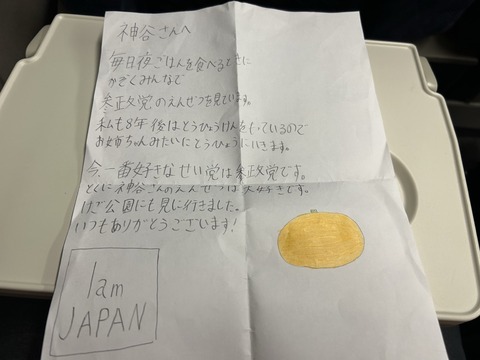 神谷さんへ
毎日夜ごはんを食べるときに
かぞくみんなで
参政党のえんぜつを見ています。
私も8年後はとうひょうけんをもっているので
お姉ちゃんみたいにとうひょうにいきます。
今、一番好きなせい党は参政党です。
とくに神谷さんのえんぜつは大好きです。
公園にも見に行きました。
いつもありがとうございます!
I am
JAPAN